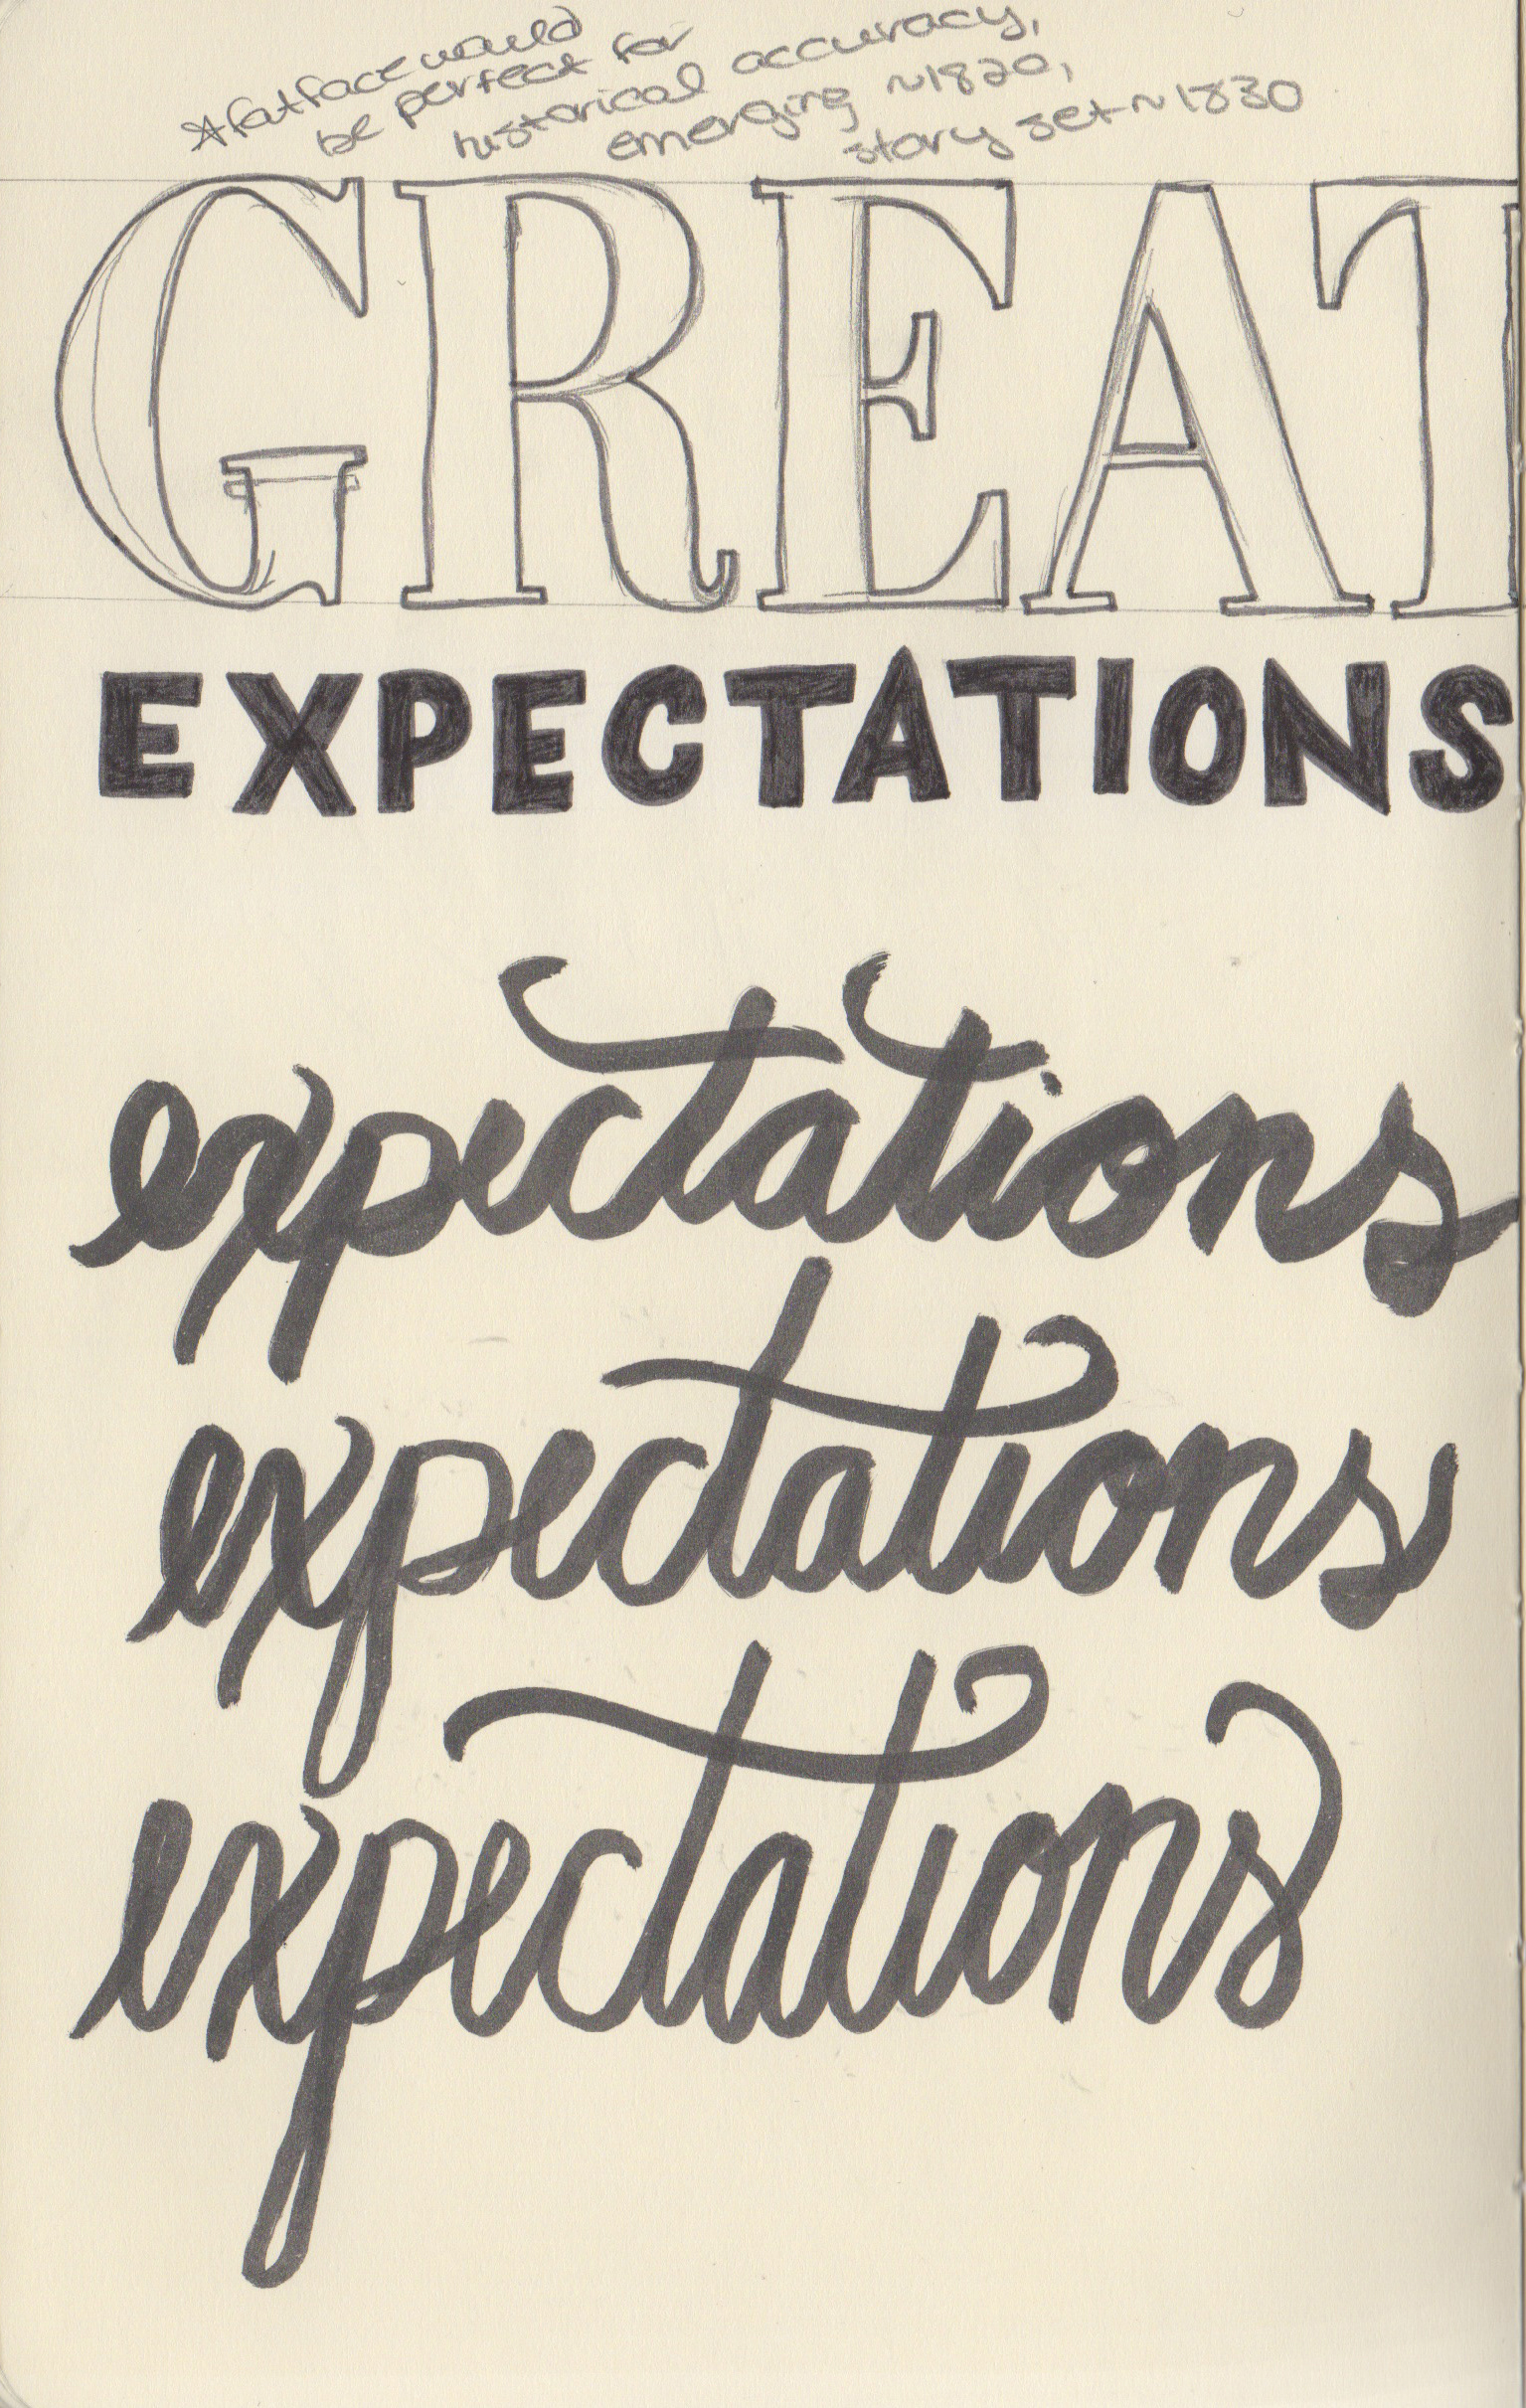 *fatface would
be perfect for
historical accuracy,
emerging ~1820,
story set ~1830
GREAT
EXPECTATIONS
expectations
expectations
expectations